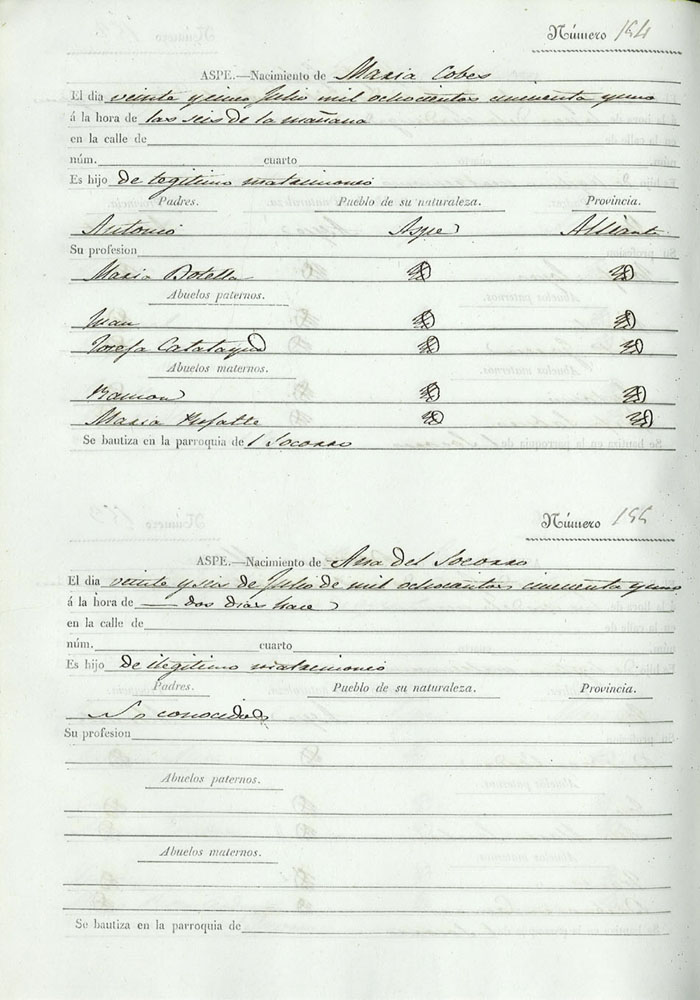 Número 194
ASPE.—Nacimiento de Maria Cobes
El dia veinte y cinco Julio mil ochocientos cincuenta y uno
á la hora de las seis de la mañana
en la calle de
núm. cuarto
Es hijo de legitimo matrimonio
Padres. Pueblo de su naturaleza. Provincia.
Antonio Aspe Alicante
Su profesion
Maria Botella
Abuelos paternos.
Juan
Josefa Calatayud
Abuelos maternos.
Ramon
Maria
Se bautiza en la parroquia del Socorro
Número
ASPE.—Nacimiento de Ana del Socorro
El dia veinte y seis de Julio de mil ochocientos cincuenta y uno
á la hora de — dos dias hace
en la calle de
núm. cuarto
Es hijo de ilegitimo matrimonio
Padres. Pueblo de su naturaleza. Provincia.
No conocidos
Su profesion
Abuelos paternos.
Abuelos maternos.
Se bautiza en la parroquia de